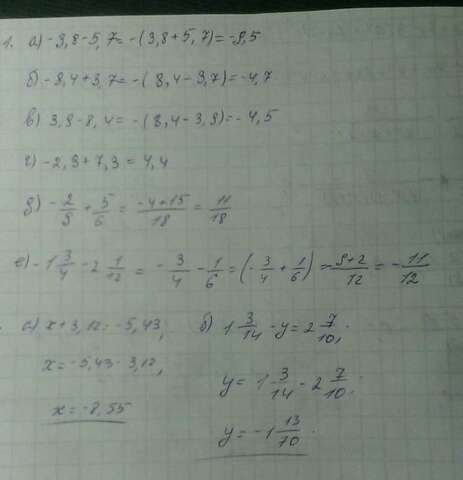 1. а) -3,8-5,7=-(3,8+5,7)=-9,5
б) -8,4+3,7=-(8,4-3,7)=-4,7
в) 3,9-8,4=-(8,4-3,9)=-4,5
г) -2,9+7,3=4,4
д) -2/9+5/6=(-4+15)/18=11/18
е) -1 3/4-2 1/12=-3/4-1/6=(-3/4+1/6)=-(9+2)/12=-11/12
а) x+3,12=-5,43,
x=-5,43-3,12,
x=-8,55
б) 1 3/14-y=2 7/10,
y=1 3/14-2 7/10.
y=-1 13/70.